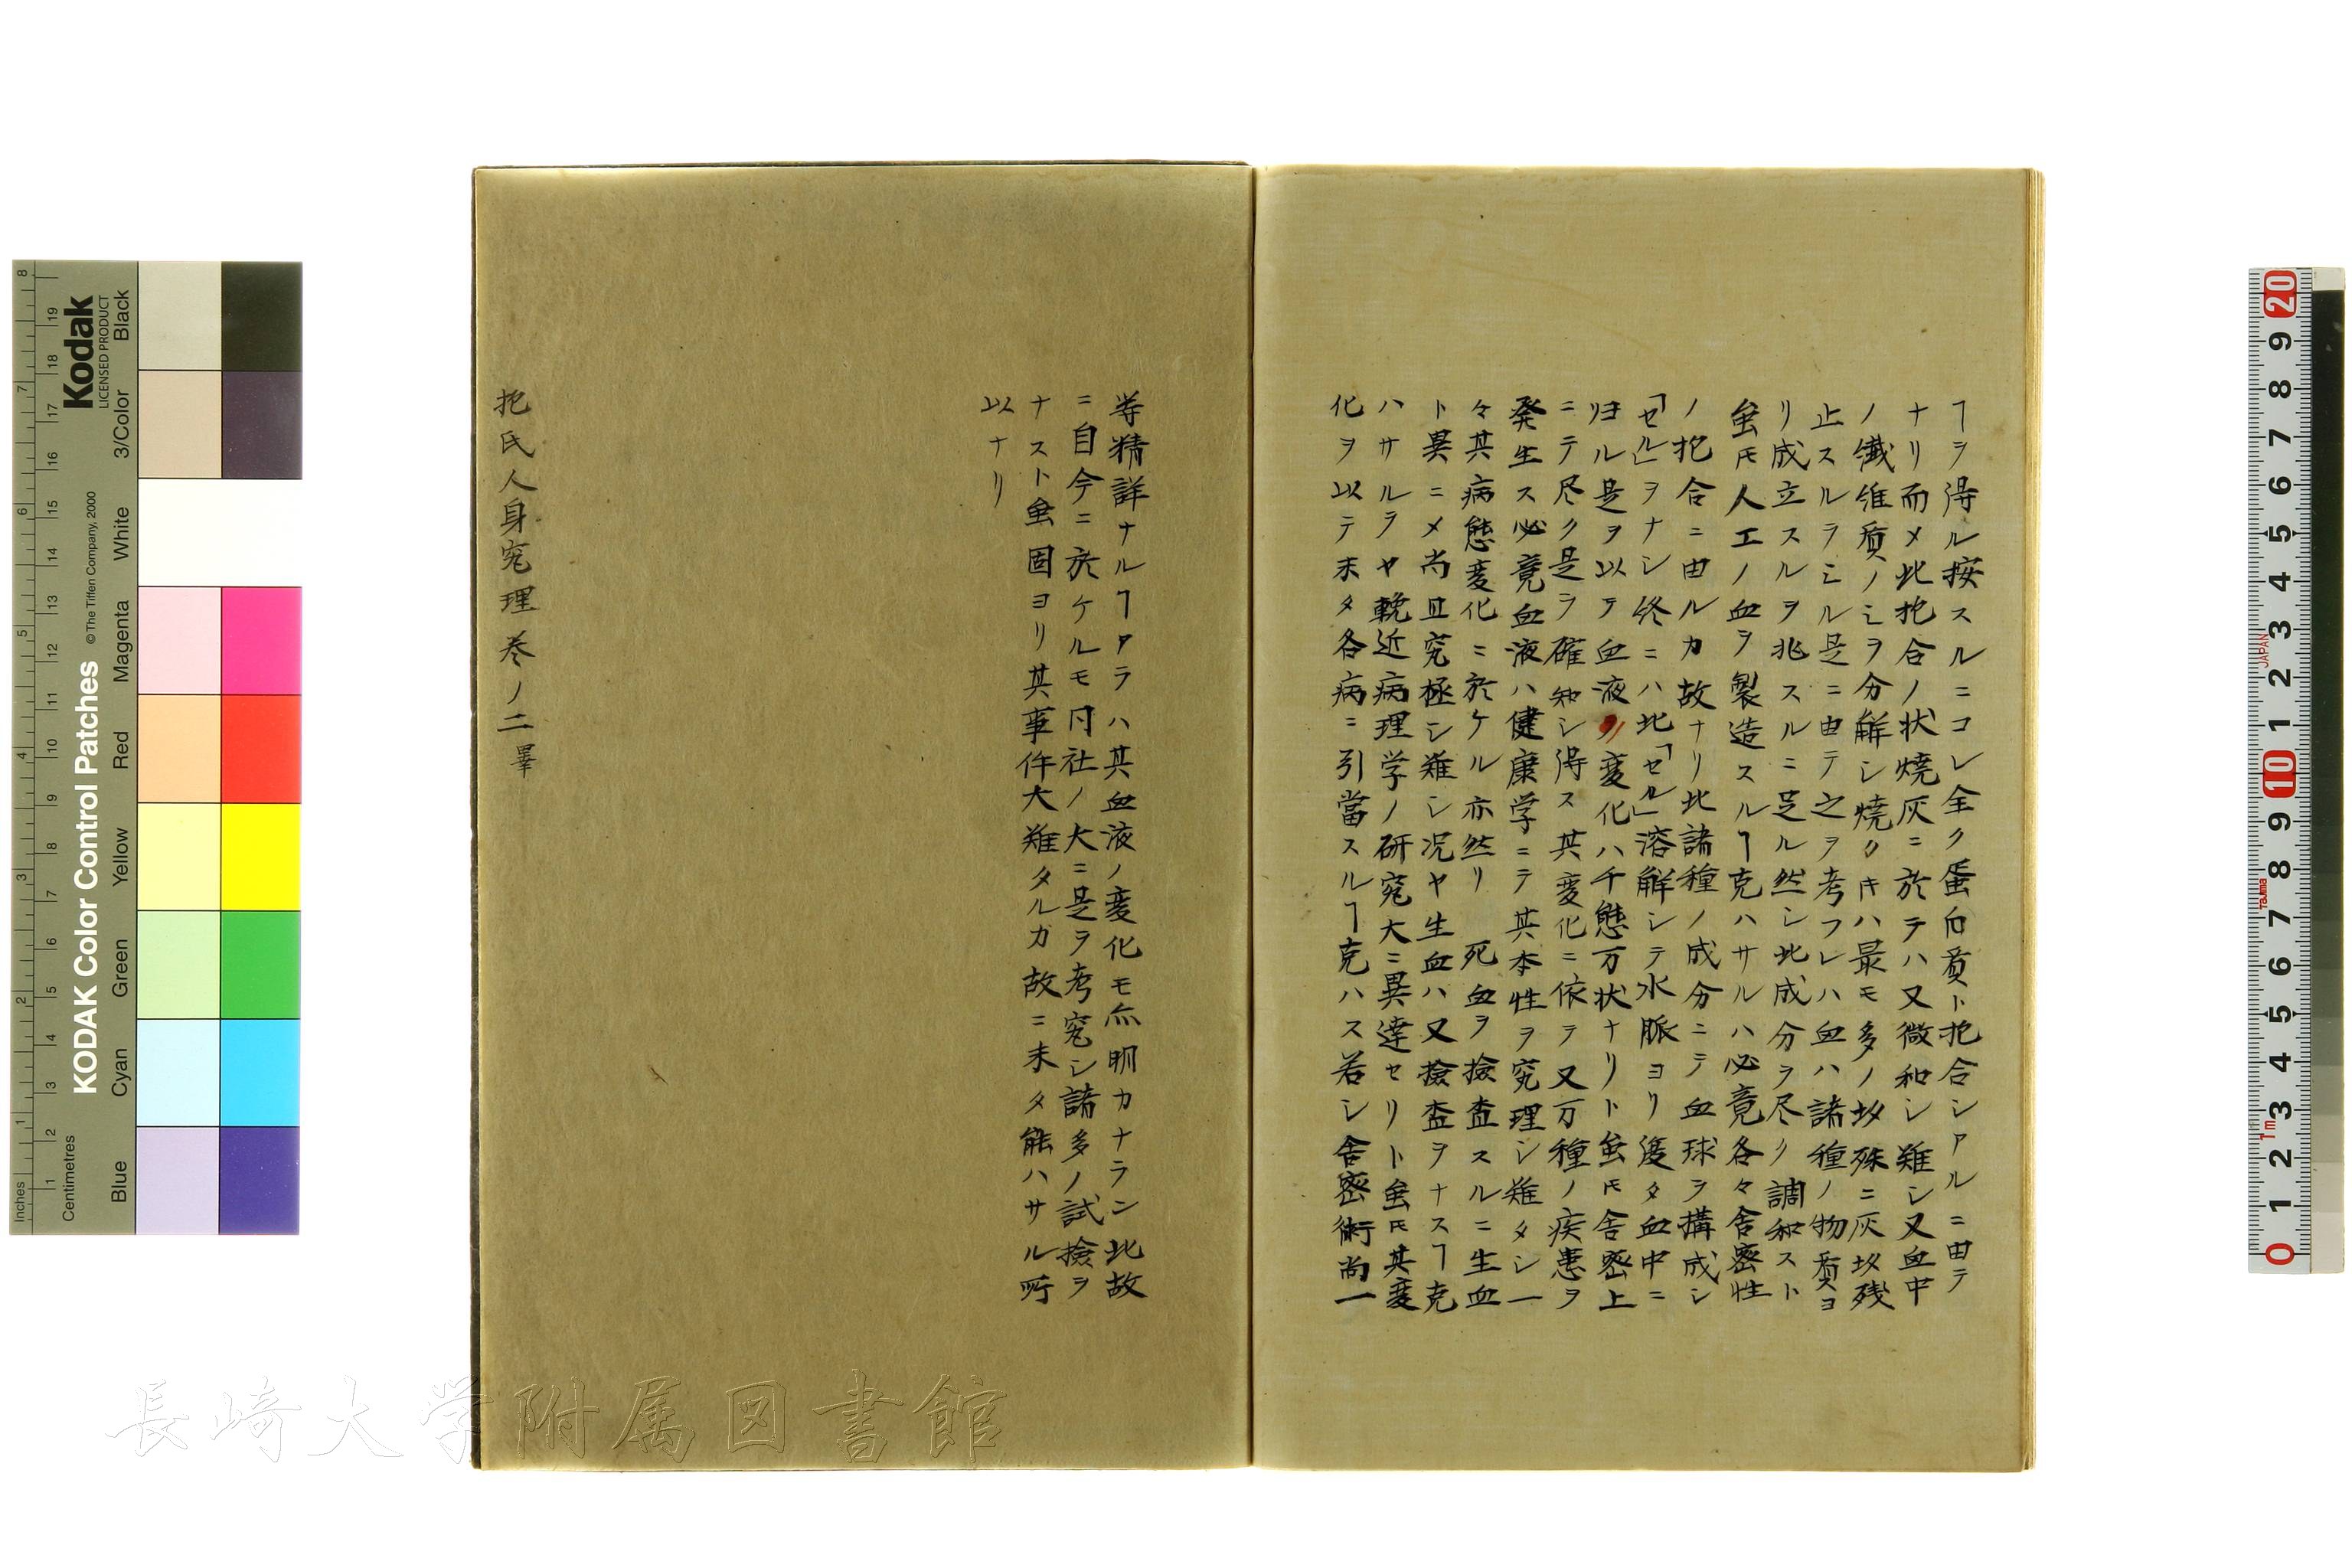 ヿヲ得ル按スルニコレ全ク蛋白質ト抱合シアルニ由テ
ナリ而メ此抱合ノ状焼灰ニ於テハ又微和シ難シ又血中
ノ繊維質ノミヲ分解シ焼クキハ最モ多ノ坆殊ニ灰坆残
止スルヲミル是ニ由テ之ヲ考フレハ血ハ諸種ノ物質ヨ
リ成立スルヲ兆スルニ足ル然シ此成分ヲ尽ク調和スト
虽𪜈人工ノ血ヲ製造スルヿ克ハサルハ必竟各々舎密性
ノ抱合ニ由ルカ故ナリ此諸種ノ成分ニテ血球ヲ搆成シ
「セル」ヲナシ終ニハ此「セル」溶解シテ水脈ヨリ復タ血中ニ
帰ル是ヲ以テ血液ノ変化ハ千態万状ナリト虽𪜈舎密上
ニテ尽ク是ヲ確知シ得ス其変化ニ依テ又万種ノ疾患ヲ
発生ス必竟血液ハ健康学ニテ其本性ヲ究理シ難タシ一
々其病態変化ニ於ケル亦然リ 死血ヲ撿査スルニ生血
ト異ニメ尚且究極シ難シ况ヤ生血ハ又撿査ヲナスヿ克
ハサルヲヤ輓近病理学ノ研究大ニ異達セリト虽𪜈其変
化ヲ以テ未タ各病ニ引當スルヿ克ハス若シ舎密術尚一
等精詳ナルヿアラハ其血液ノ変化モ亦明カナラン此故
ニ自今ニ於ケルモ同社ノ大ニ是ヲ考究シ諸多ノ試撿ヲ
ナスト虽固ヨリ其事件大難タルカ故ニ未タ能ハサル所
以ナリ
抱氏人身究理巻ノ二畢
KODAK Color Control Patches
©The Tiffen Company, 2000
Kodak
LICENSED PRODUCT
Inches
Centimetres
Blue Cyan Green Yellow Red Magenta White 3/Color Black
JAPAN
Tajima
Tm
長崎大学附属図書館